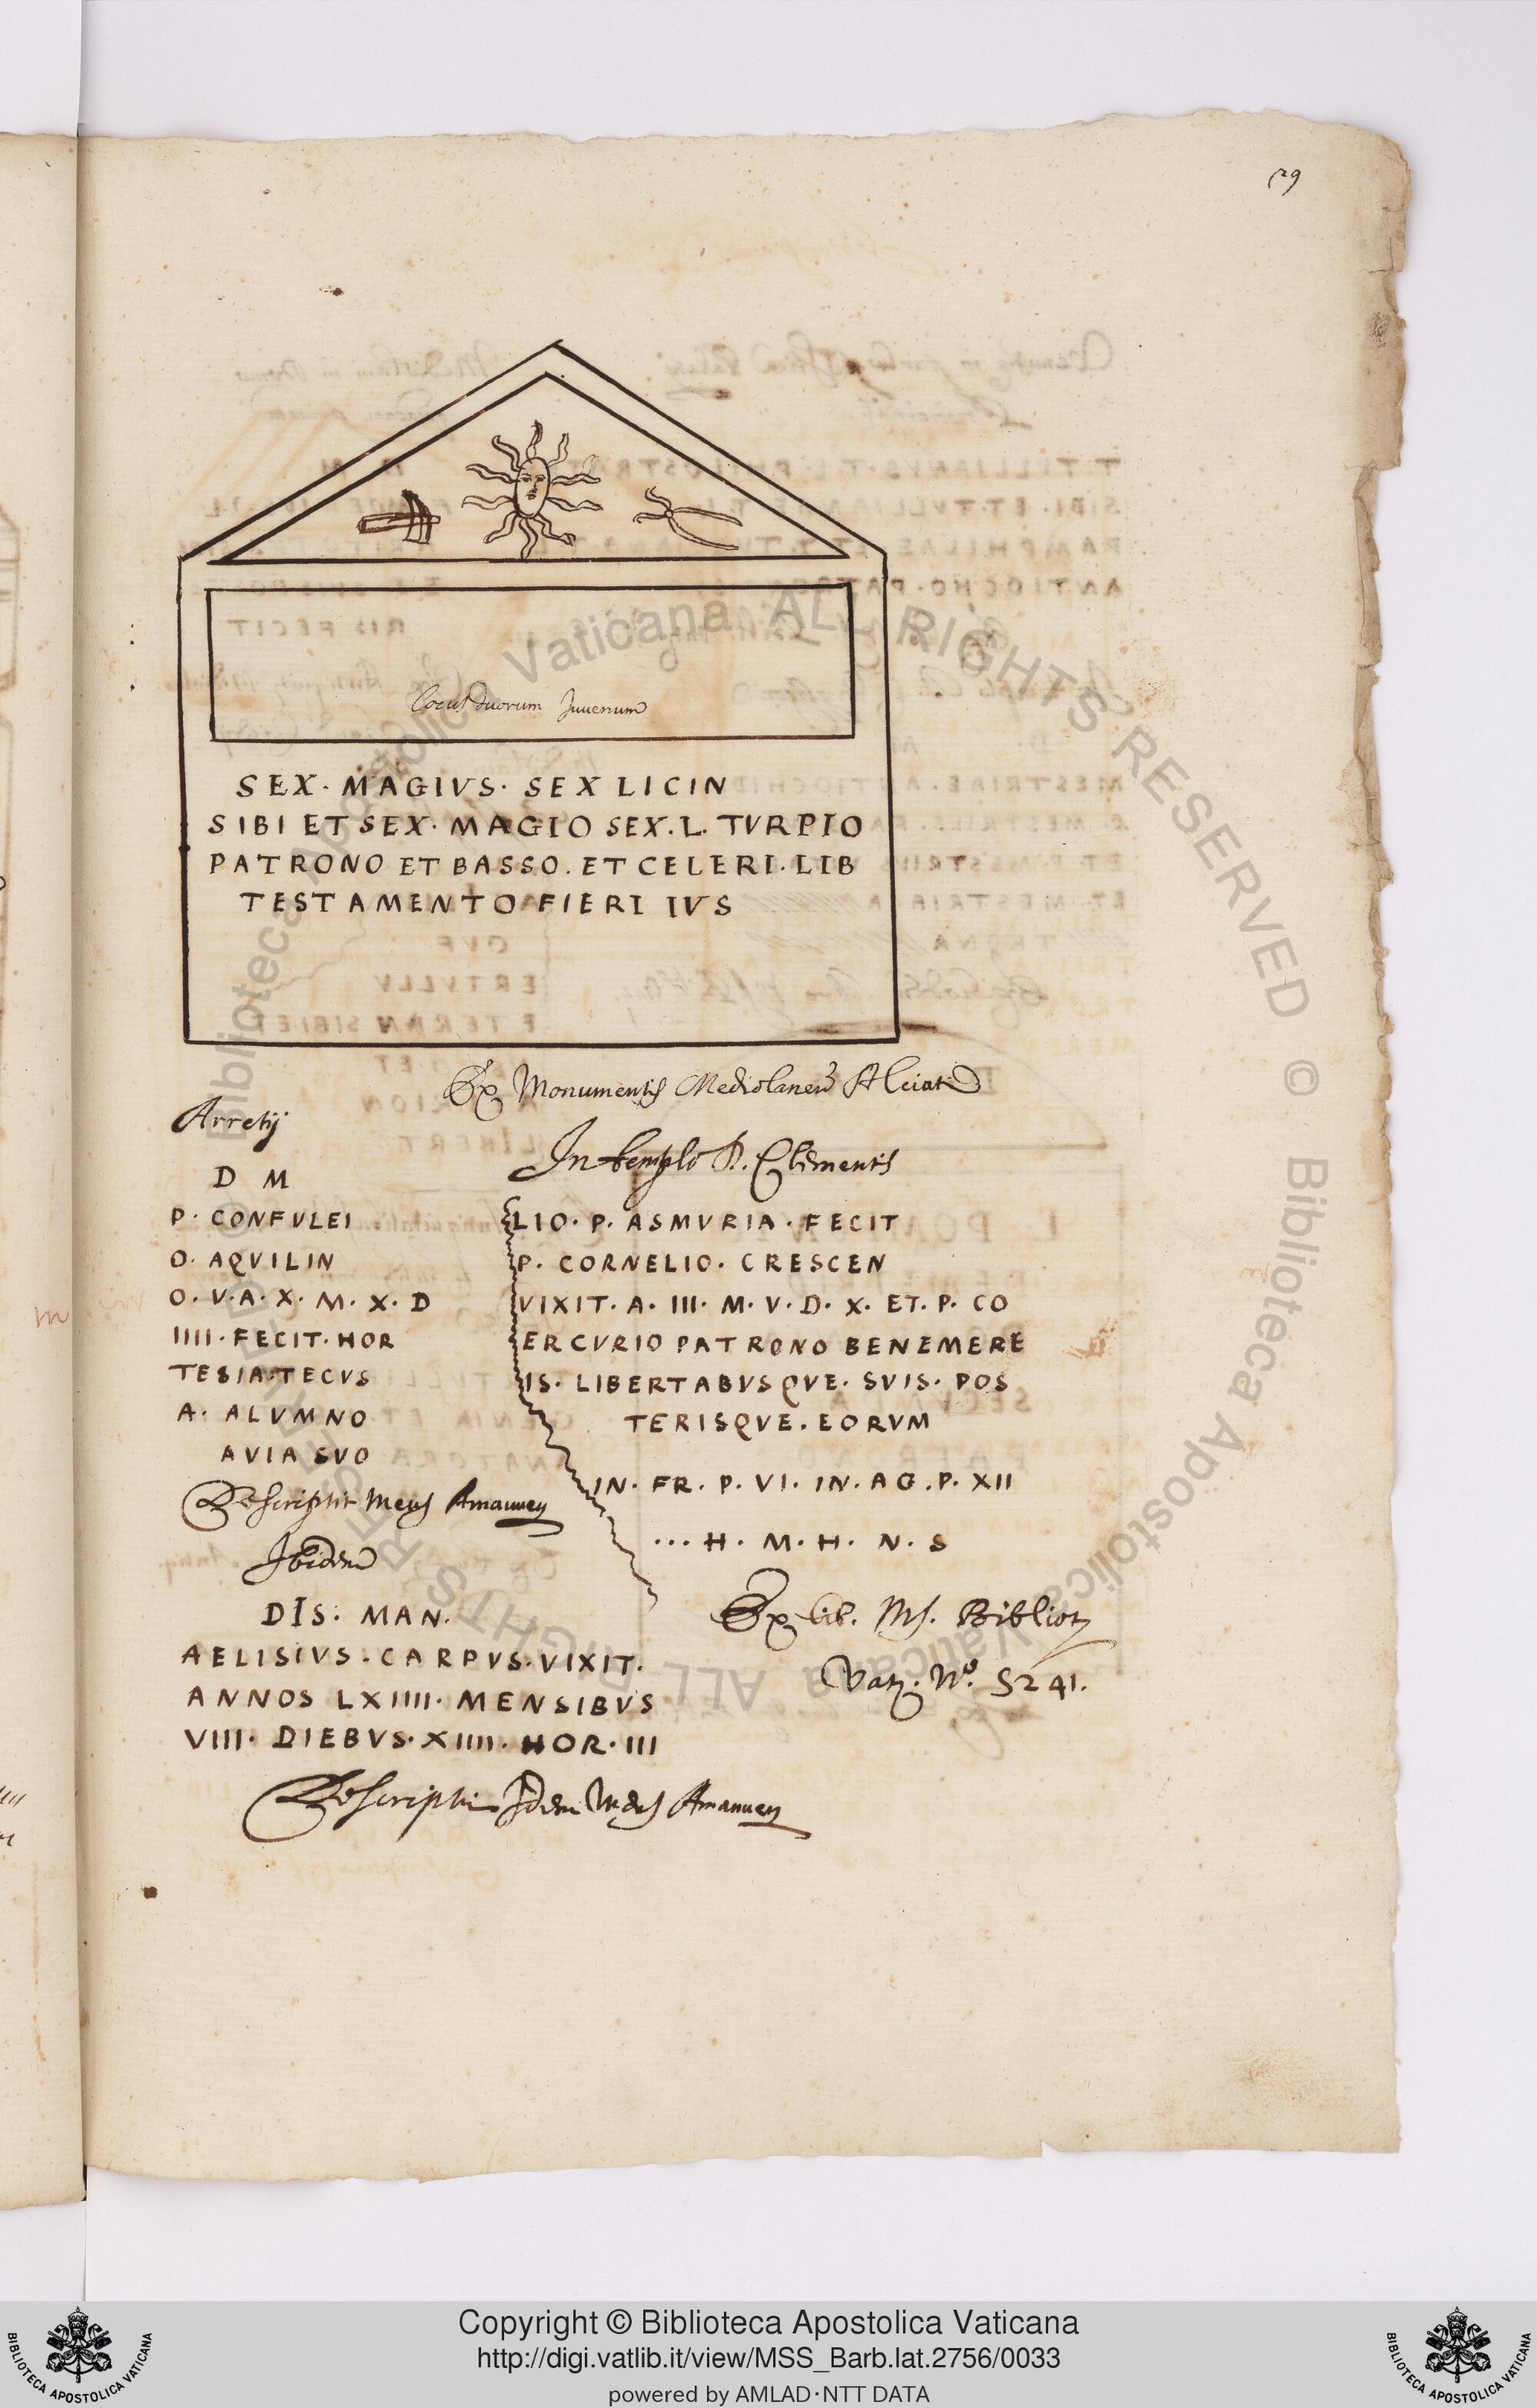 29
Locus duorum Juvenum
SEX · MAGIVS · SEX LICIN
SIBI ET SEX · MAGIO SEX · L · TVRPIO
PATRONO ET BASSO · ET CELERI · LIB
TESTAMENTO FIERI IVS
Ex Monumentis Mediolanen Alciati
Arretij
D M
P · CONFVLEI
O · AQVILIN
O · V · A · X · M · X · D
IIII · FECIT · HOR
TESIA · TECVS
A · ALVMNO
AVIA SVO
Descripsit Meus Amanuen
Ibidem
DIS · MAN ·
AELISIVS · CARPVS · VIXIT ·
ANNOS LXIIII · MENSIBVS
VIII · DIEBVS · XIIII · HOR · III
Descripsit Idem Meus Amanuen
In templo D. Clementis
LIO · P · ASMVRIA · FECIT
P · CORNELIO · CRESCEN
VIXIT · A · III · M · V · D · X · ET · P · CO
ERCVRIO PATRONO BENEMERE
IS · LIBERTABVSQVE · SVIS · POS
TERISQVE · EORVM
IN · FR · P · VI · IN · AG · P · XII
... H · M · H · N · S
Ex lib. Ms. Bibliot
Vat. No. 5241.
© Biblioteca Apostolica Vaticana ALL RIGHTS RESERVED
© Biblioteca Apostolica Vaticana ALL RIGHTS RESERVED
Copyright © Biblioteca Apostolica Vaticana
http://digi.vatlib.it/view/MSS_Barb.lat.2756/0033
powered by AMLAD·NTT DATA
BIBLIOTECA APOSTOLICA VATICANA
BIBLIOTECA APOSTOLICA VATICANA